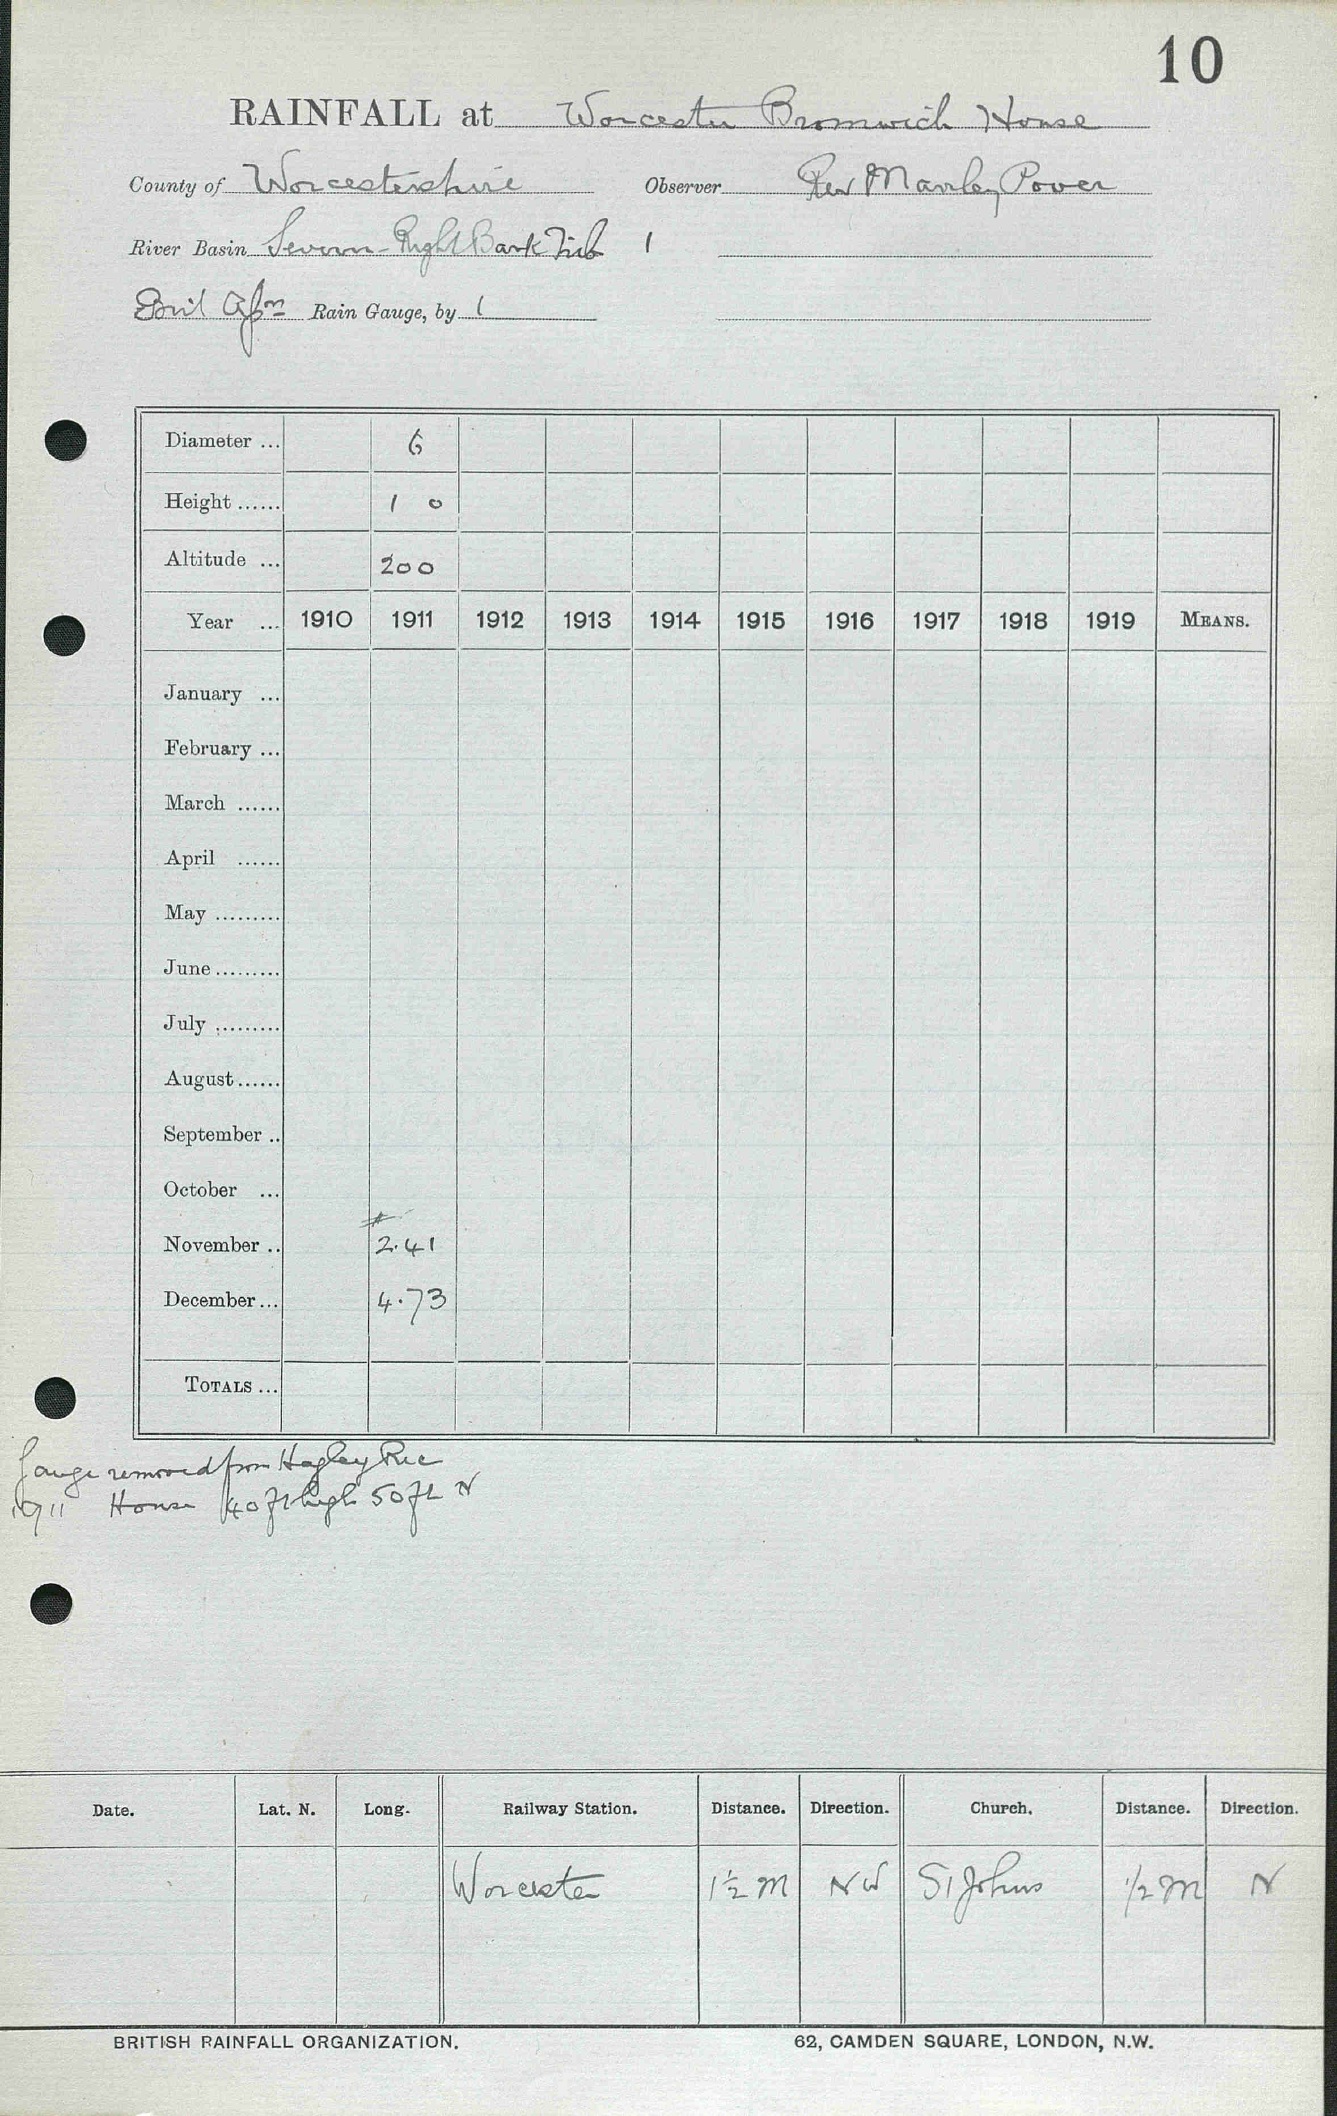 10
RAINFALL at Worcester Bromwich House
County of Worcestershire Observer Rev Manley Power
River Basin Severn-Right Bank Trib 1
Rain Gauge, by 1
Diameter ... 6
Height ...... 1 0
Altitude ... 200
Year ... 1910 1911 1912 1913 1914 1915 1916 1917 1918 1919 MEANS.
January ...
February ...
March ......
April ......
May .........
June .........
July .........
August ......
September ..
October ...
#
November .. 2.41
December ... 4.73
TOTALS ...
Gauge removed from Hagley Rec
1911 House 40 ft high 50 ft N
Date. Lat. N. Long. Railway Station. Distance. Direction. Church. Distance. Direction.
Worcester 1½ M NW St Johns ½ M N
BRITISH RAINFALL ORGANIZATION. 62, CAMDEN SQUARE, LONDON, N.W.